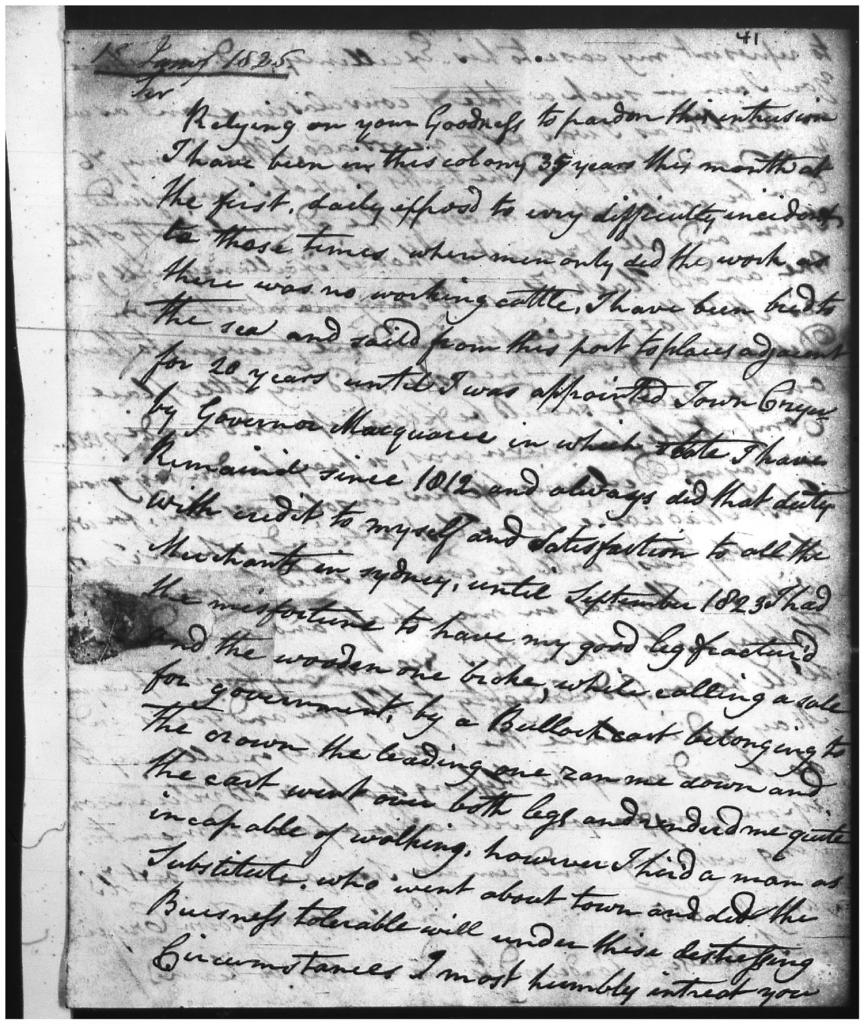 41
18 Jany 1825
Sir
Relying on your Goodness to pardon this intrusion
I have been in this colony 37 years this month at
the first, daily exposd to evry difficulty incident
to those times when men only did the work as
there was no working cattle, I have been bred to
the sea and saild from this port to places adjacent
for 20 years until I was appointed Town Cryer
by Governor Macquarie in which state I have
Remaind since 1812 and always did that duty
with credit to myself and Satisfaction to all the
Merchants in sydney, until September 1823 I had
the misfortune to have my good leg fractur'd
and the wooden one broke, while calling a sale
for government, by a Bullock cart belonging to
the crown the leading one ran me down and
the cart went over both legs and renderd me quite
incapable of walking, however I hird a man as
Substitute, who went about town and did the
Buisness tolerable will under these distressing
Circumstances I most humbly intreat you